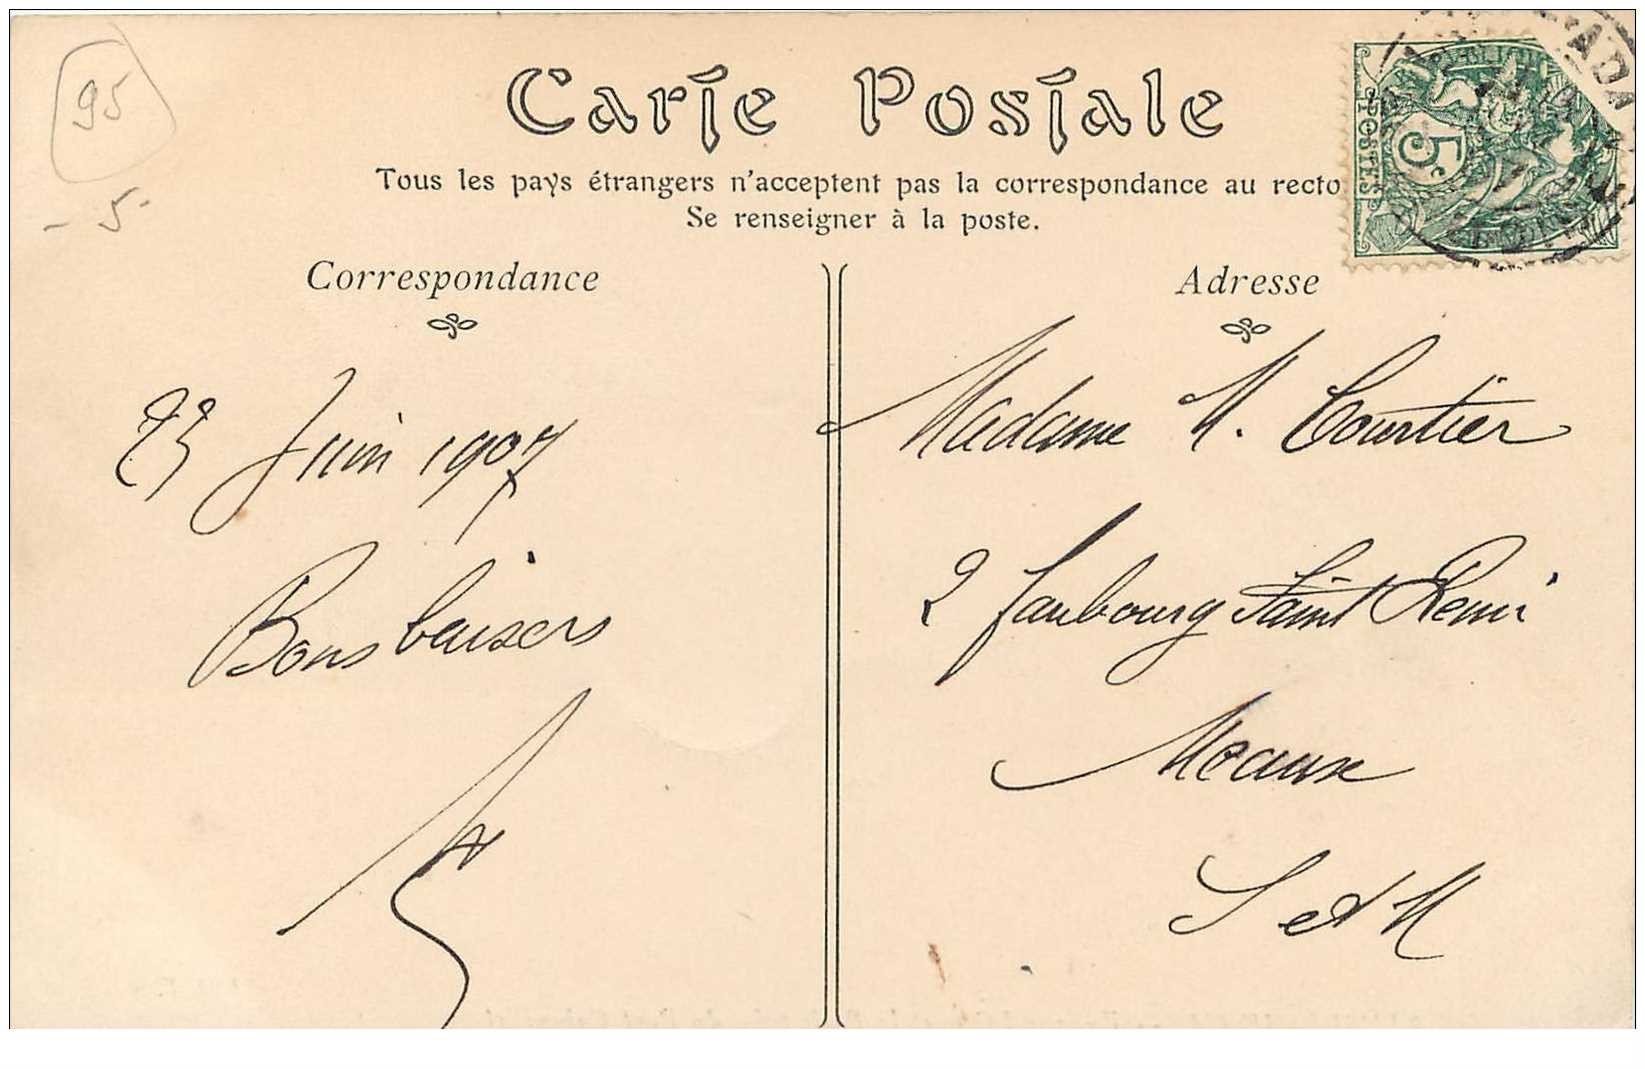 95
- 5 -
Carte Postale
Tous les pays étrangers n'acceptent pas la correspondance au recto
Se renseigner à la poste.
Correspondance
23 Juin 1907
Bons baisers
Adresse
Madame M. Courtier
2 faubourg Saint Remi
Meaux
S et M
POSTES
5c